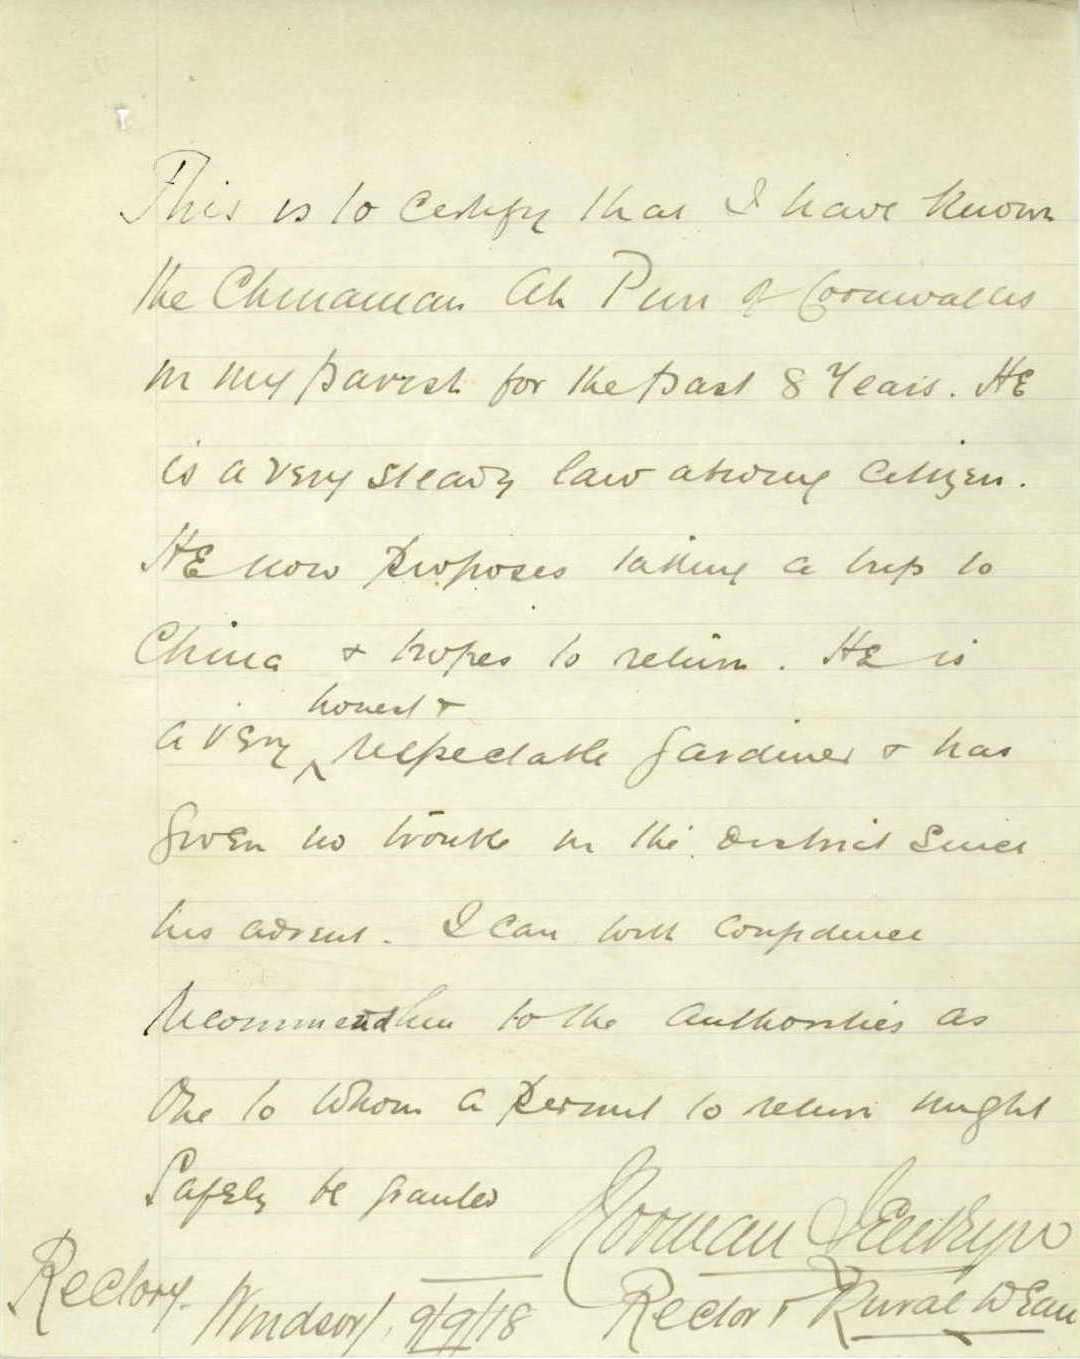 This is to Certify that I have known
the Chinaman Ah Pun of Cornwallis
in my parish for the past 8 Years. HE
is a very steady law abiding Citizen.
HE now proposes taking a trip to
China & hopes to return. HE is
honest &
a very ^ respectable gardiner & has
given no trouble in the District Since
his advent. I can with confidence
recommend him to the Authorities as
One to Whom a Permit to return might
Safely be granted
Norman Jenkyn
Rectory. Windsor, 9/9/18 Rector & Rural Dean